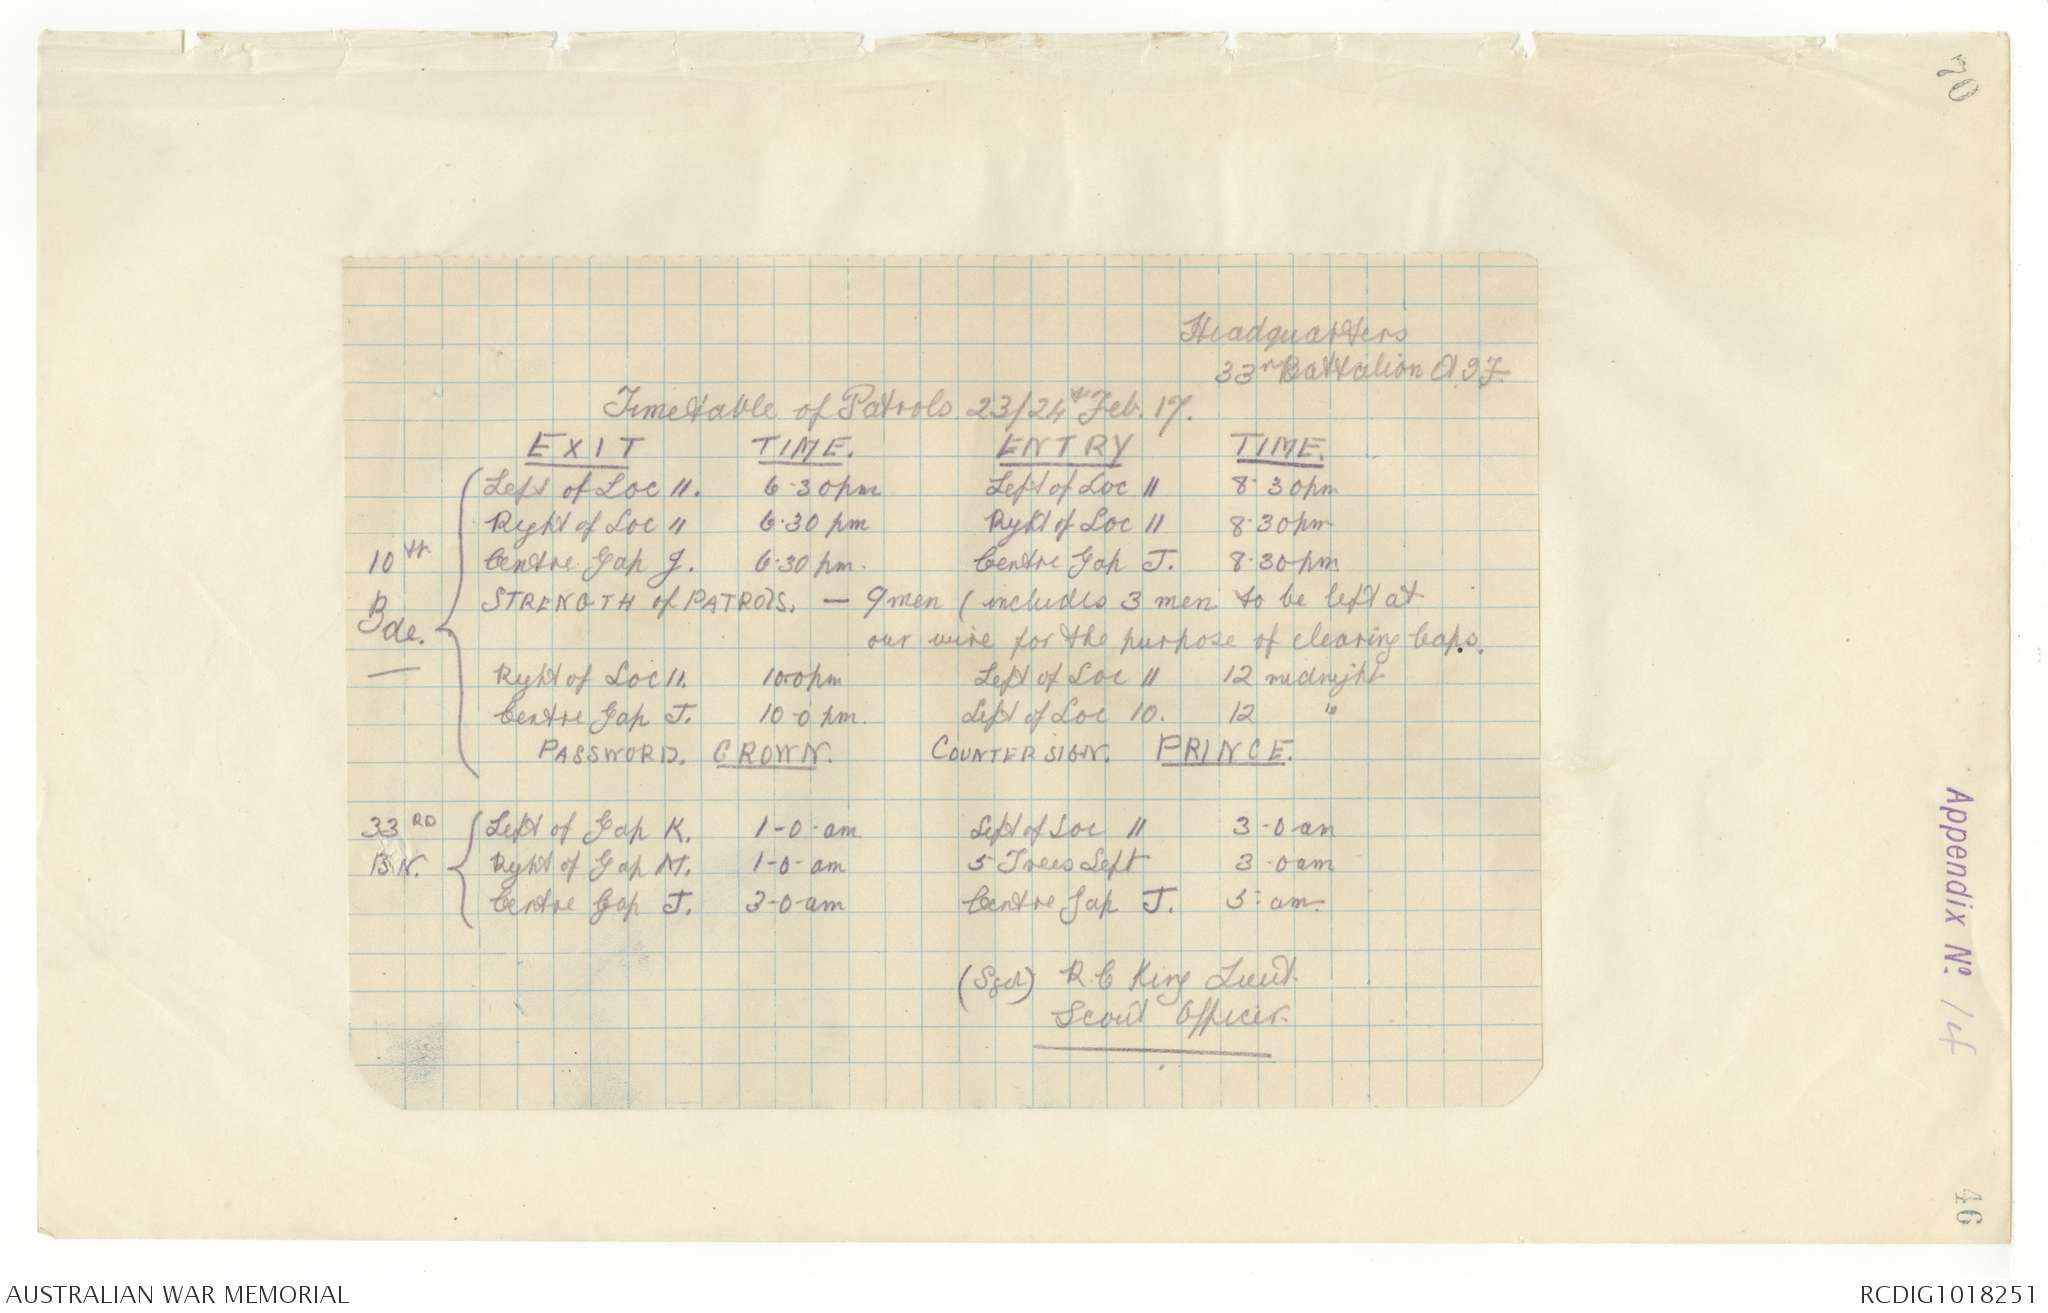 70
Headquarters
33rd Battalion A.I.F.
Timetable of Patrols 23/24th Feb. 17.
EXIT TIME. ENTRY TIME.
Left of Loc 11. 6.30pm Left of Loc 11 8.30pm
Right of Loc 11 6.30 pm Right of Loc 11 8.30pm
10th Bde. Centre Gap J. 6.30 pm. Centre Gap J. 8.30pm
STRENGTH of PATROLS. — 9 men (includes 3 men to be left at
our wire for the purpose of clearing Gaps.
Right of Loc 11. 10.0pm Left of Loc 11 12 midnight
Centre Gap J. 10.0 pm. Left of Loc 10. 12 "
PASSWORD. CROWN. COUNTERSIGN. PRINCE.
33RD Left of Gap K. 1-0-am Left of Loc 11 3-0-am
BN. Right of Gap M. 1-0-am 5 Trees Left 3-0am
Centre Gap J. 3-0-am Centre Gap J. 5-am.
(Sgd) R.C King Lieut.
Scout Officer.
Appendix No. 14
46
AUSTRALIAN WAR MEMORIAL
RCDIG1018251